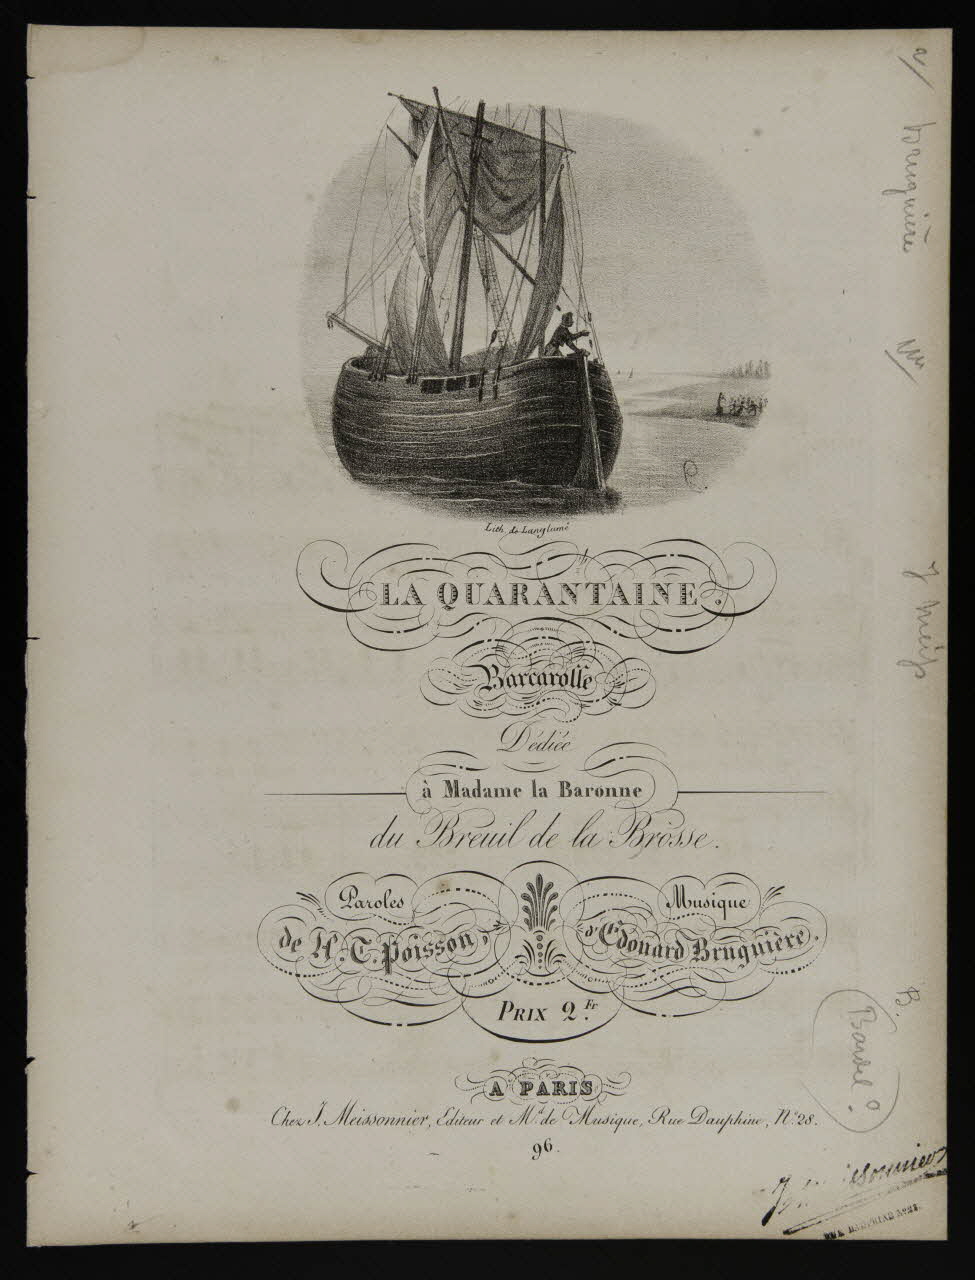 Lith. de Langlumé
LA QUARANTAINE.
Barcarolle
Dédiée
à Madame la Baronne
du Breuil de la Brosse.
Paroles
de H. T. Poisson,
Musique
d'Edouard Bruguière.
PRIX 2.Fr
A PARIS
Chez J. Meissonnier, Editeur et Md. de Musique, Rue Dauphine, No. 28.
96.
bruguière
J meiss
B.
RUE DAUPHINE No 28.